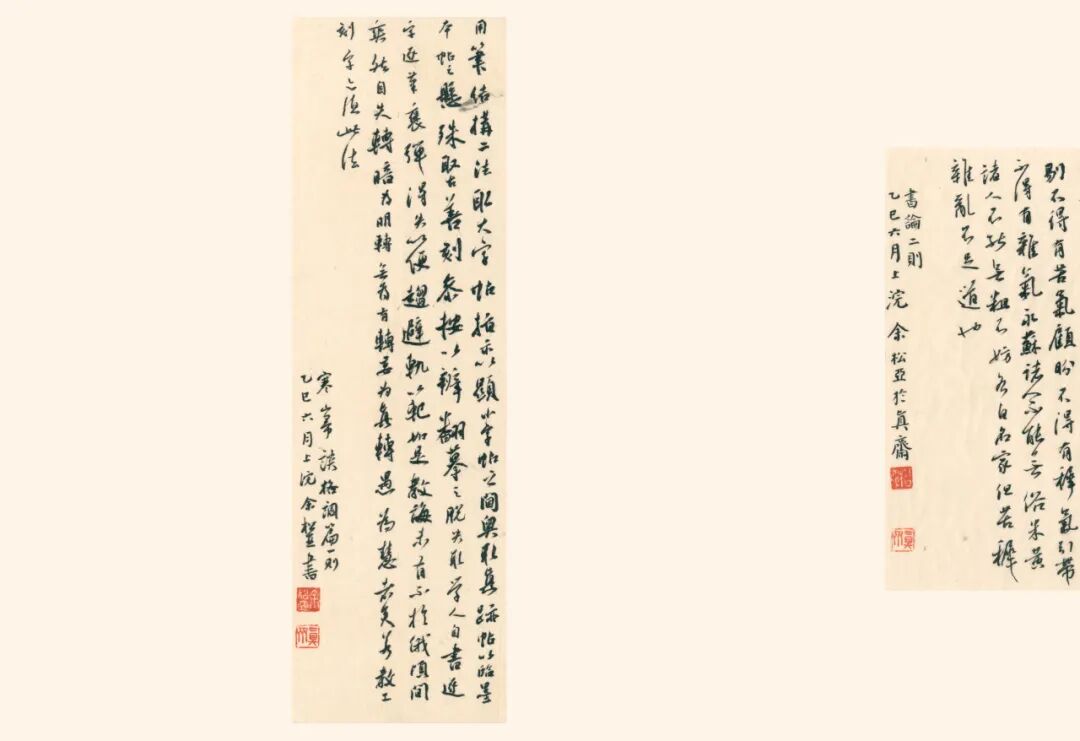 剔不得有苦氣顧盼不得有稚氣引帶
不得有雜氣蘇諸不能無俗米黃
諸人不能無粗不妨各自名家但苦稚
雜亂不足道也
書論二則
乙巳六月上浣余松亞於真齋
用筆結構二法取大字帖指示以顯小字帖之間奧取真跡帖以臨墨
本帖之懸殊取古善刻參按以辨翻摹之脫失取學人自書近
字近筆褒彈得失以便趨避軌以範如是教誨未有不於俄頃間
爽然自失轉暗為明轉無為有轉為無轉愚為慧者矣若教工
刻字亦須此法
寒山帚談格調篇一則
乙巳六月上浣余松亞書